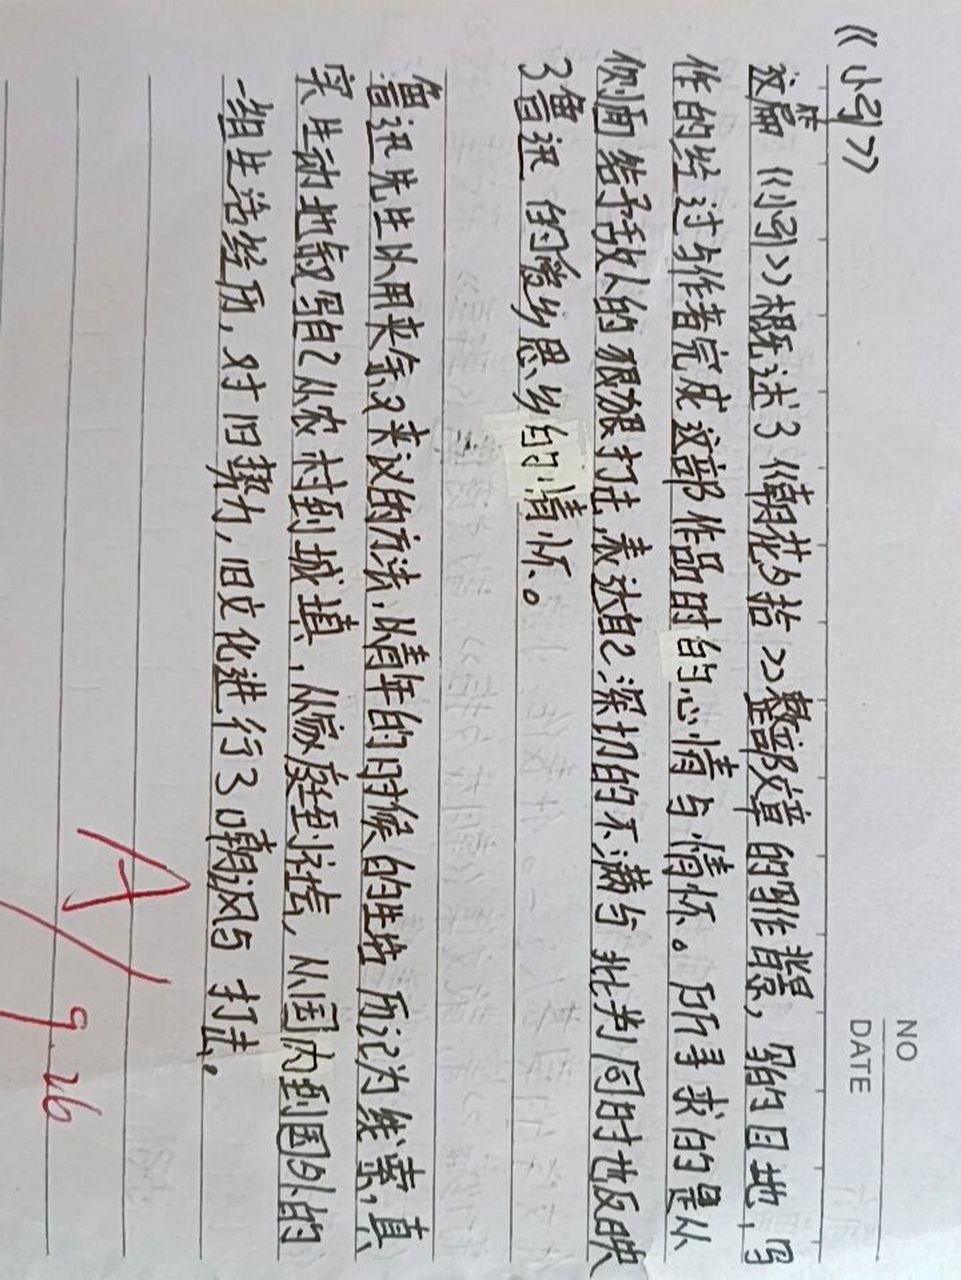 NO
DATE
《小引》
这篇《小引》概述了《朝花夕拾》整部文章的写作背景，写的目地，写
作的经过与作者完成这部作品时的心情与情怀。所寻求的是从
侧面给予敌人的狠狠打击，表达自己深切的不满与批判同时也反映
了鲁迅的爱乡思乡的情怀。
鲁迅先生以用夹叙夹议的方法，以青年的时候的生牿历记为线索，真
实生动地叙写自己从农村到城填，从家庭到社会，从国内到国外的
一组生活经历，对旧势力，旧文化进行了嘲讽与打击。
A
9.26